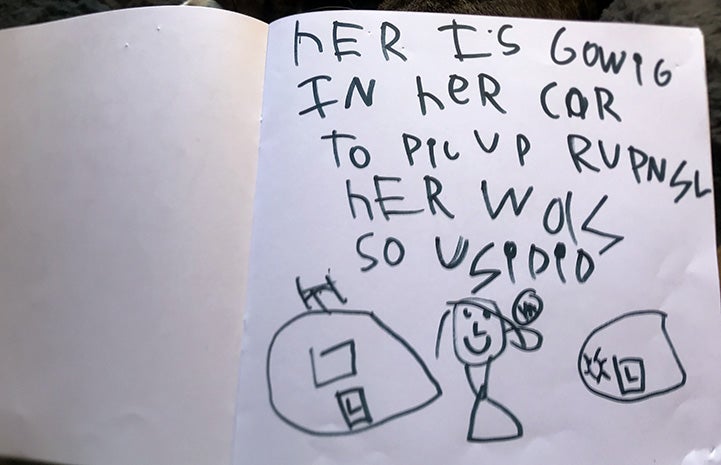 hER IS GOWIG
IN heR CAR
TO PIC UP RUPNSL
hER WOIS
SO USIDID